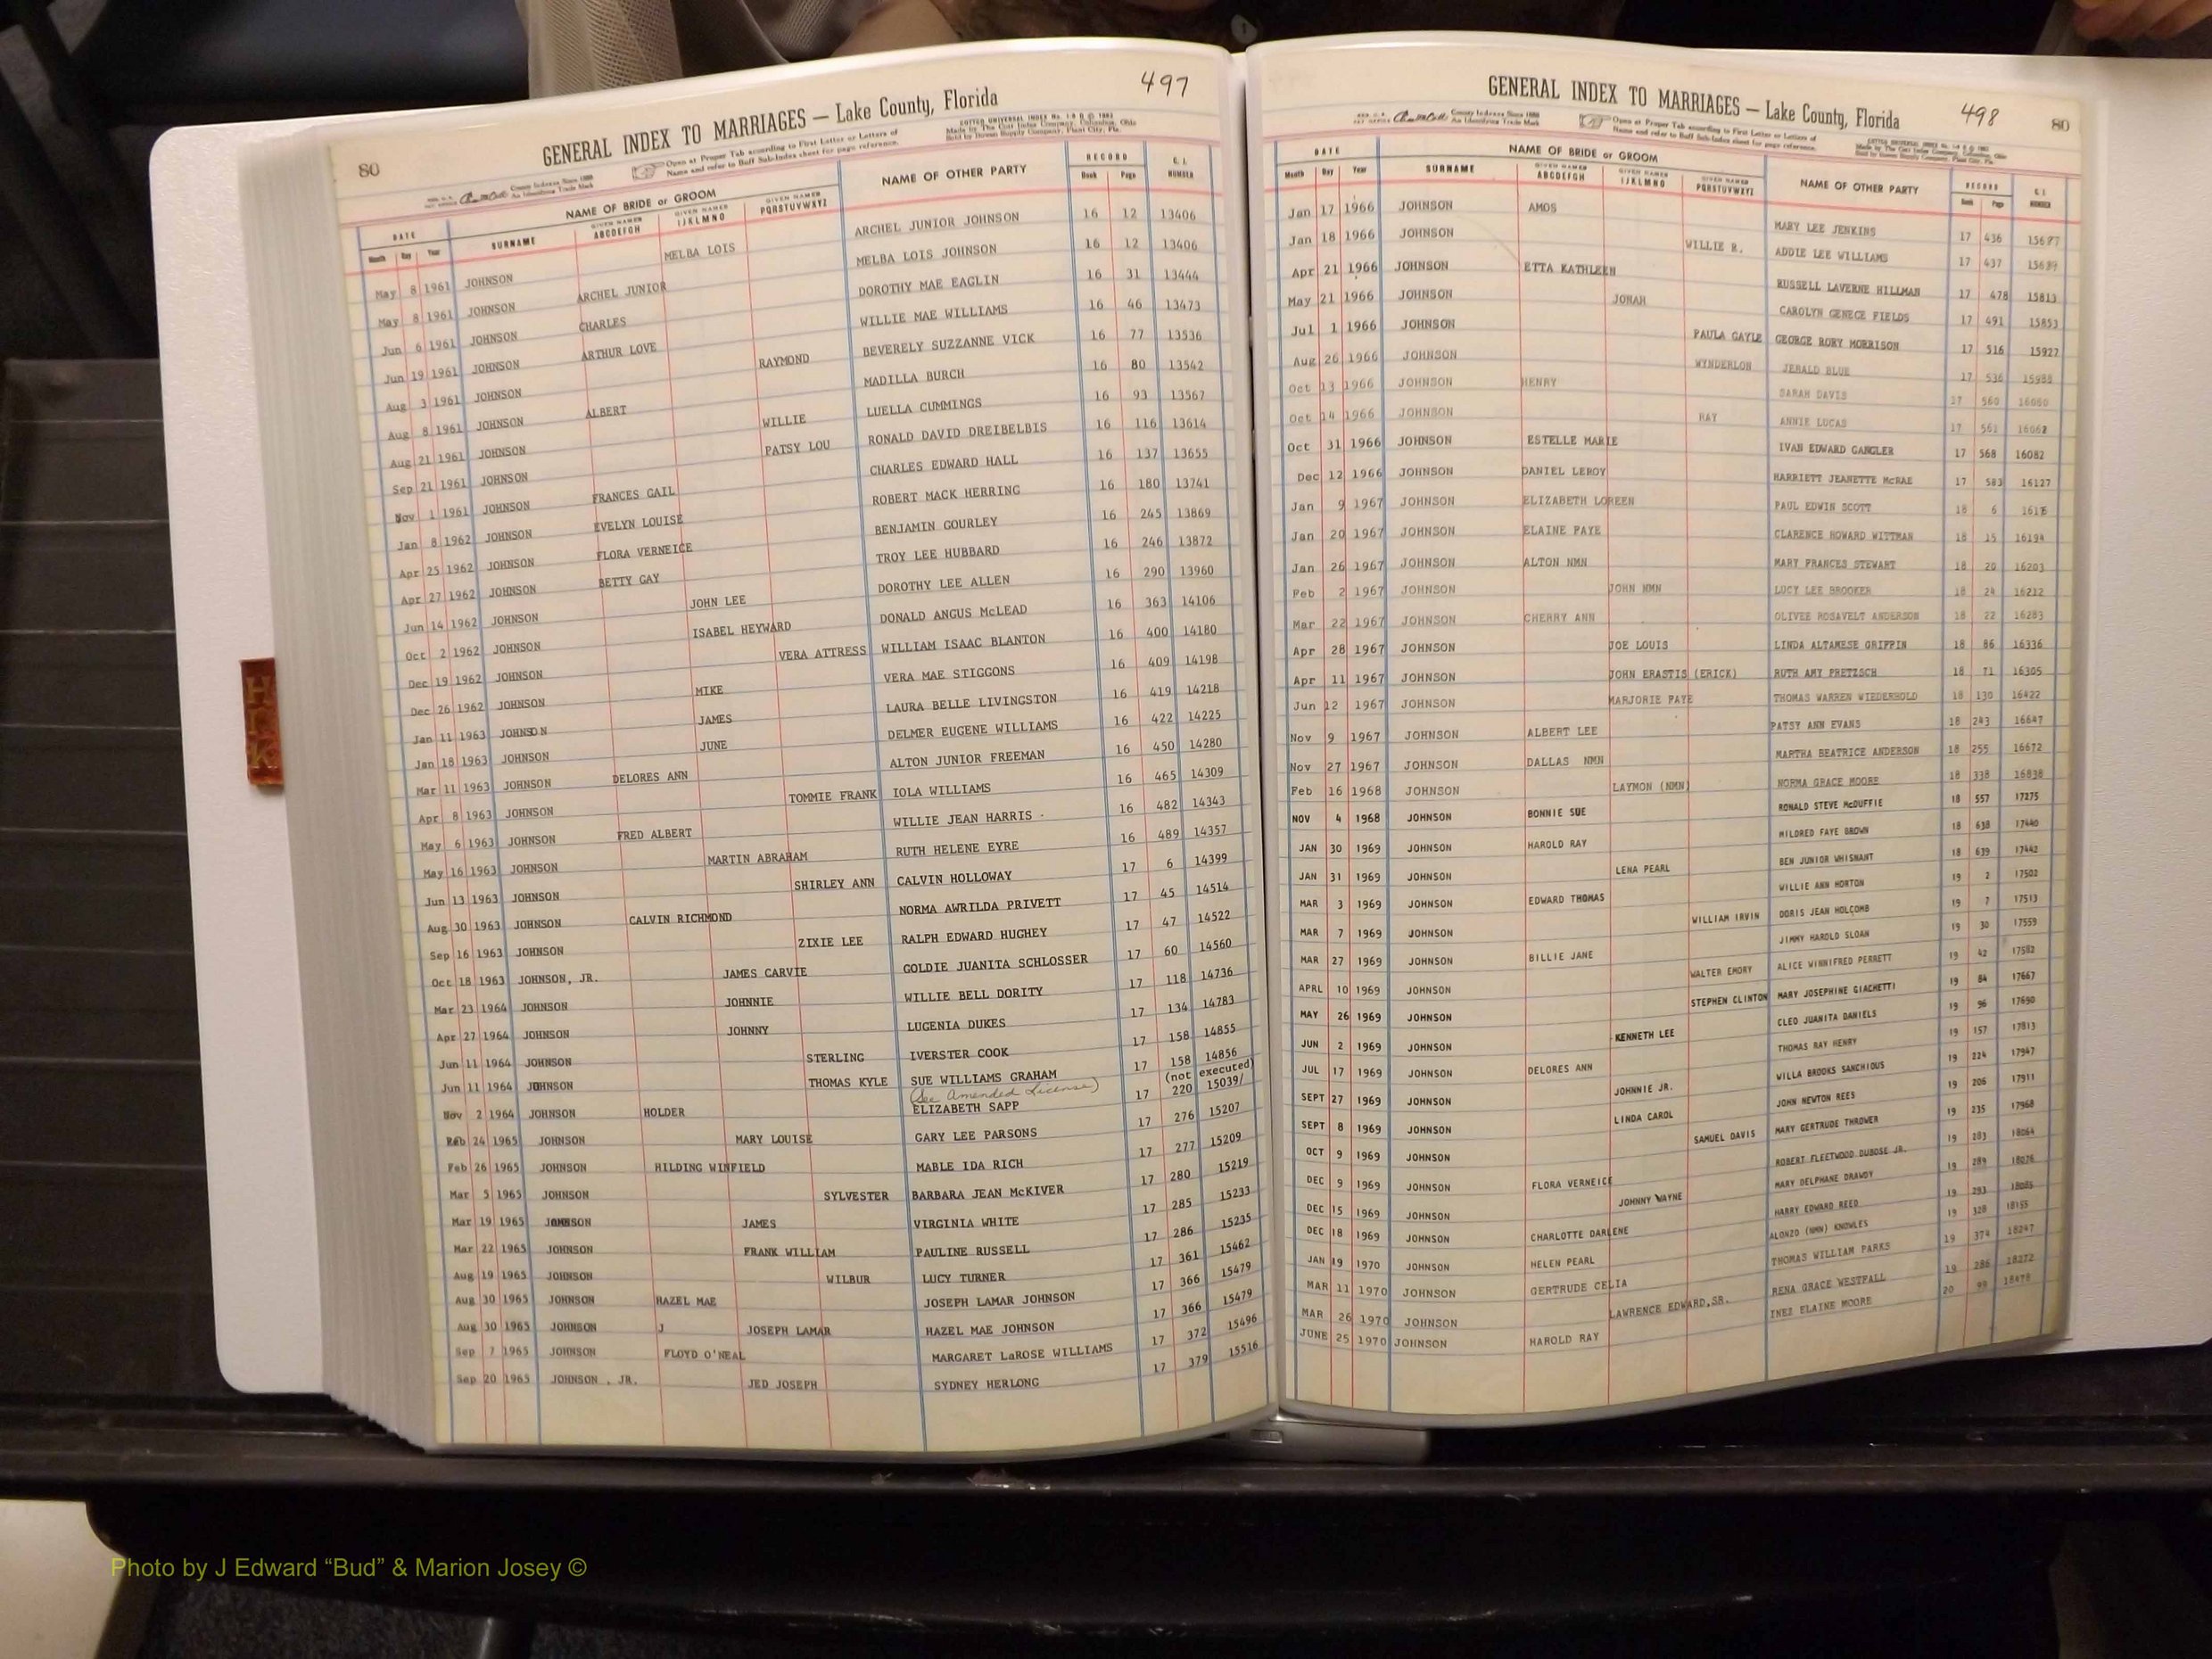 80
497
GENERAL INDEX TO MARRIAGES — Lake County, Florida
Open at Proper Tab according to First Letter or Letters of
Name and refer to Buff Sub-Index sheet for page reference.
County Indexes Since 1888
An Identifying Trade Mark
COTT CO UNIVERSAL INDEX
Made by The Cott Index Company, Columbus, Ohio
Sold by Brown Supply Company, Plant City, Fla.
DATE NAME OF BRIDE or GROOM NAME OF OTHER PARTY RECORD
Month Day Year SURNAME GIVEN NAMES ABCDEFGH GIVEN NAMES IJKLMNO GIVEN NAMES PQRSTUVWXYZ Book Page NUMBER
May 8 1961 JOHNSON MELBA LOIS ARCHEL JUNIOR JOHNSON 16 12 13406
May 8 1961 JOHNSON ARCHEL JUNIOR MELBA LOIS JOHNSON 16 12 13406
Jun 6 1961 JOHNSON CHARLES DOROTHY MAE EAGLIN 16 31 13444
Jun 19 1961 JOHNSON ARTHUR LOVE WILLIE MAE WILLIAMS 16 46 13473
Aug 3 1961 JOHNSON RAYMOND BEVERELY SUZZANNE VICK 16 77 13536
Aug 8 1961 JOHNSON ALBERT MADILLA BURCH 16 80 13542
Aug 21 1961 JOHNSON WILLIE LUELLA CUMMINGS 16 93 13567
Sep 21 1961 JOHNSON PATSY LOU RONALD DAVID DREIBELBIS 16 116 13614
Nov 1 1961 JOHNSON FRANCES GAIL CHARLES EDWARD HALL 16 137 13655
Jan 8 1962 JOHNSON EVELYN LOUISE ROBERT MACK HERRING 16 180 13741
Apr 25 1962 JOHNSON FLORA VERNEICE BENJAMIN GOURLEY 16 245 13869
Apr 27 1962 JOHNSON BETTY GAY TROY LEE HUBBARD 16 246 13872
Jun 14 1962 JOHNSON JOHN LEE DOROTHY LEE ALLEN 16 290 13960
Oct 2 1962 JOHNSON ISABEL HEYWARD DONALD ANGUS McLEAD 16 363 14106
Dec 19 1962 JOHNSON VERA ATTRESS WILLIAM ISAAC BLANTON 16 400 14180
Dec 26 1962 JOHNSON MIKE VERA MAE STIGGONS 16 409 14198
Jan 11 1963 JOHNSON JAMES LAURA BELLE LIVINGSTON 16 419 14218
Jan 18 1963 JOHNSON JUNE DELMER EUGENE WILLIAMS 16 422 14225
Mar 11 1963 JOHNSON DELORES ANN ALTON JUNIOR FREEMAN 16 450 14280
Apr 8 1963 JOHNSON TOMMIE FRANK IOLA WILLIAMS 16 465 14309
May 6 1963 JOHNSON FRED ALBERT WILLIE JEAN HARRIS 16 482 14343
May 16 1963 JOHNSON MARTIN ABRAHAM RUTH HELENE EYRE 16 489 14357
Jun 13 1963 JOHNSON SHIRLEY ANN CALVIN HOLLOWAY 17 6 14399
Aug 30 1963 JOHNSON CALVIN RICHMOND NORMA AWRILDA PRIVETT 17 45 14514
Sep 16 1963 JOHNSON ZIXIE LEE RALPH EDWARD HUGHEY 17 47 14522
Oct 18 1963 JOHNSON, JR. JAMES CARVIE GOLDIE JUANITA SCHLOSSER 17 60 14560
Mar 23 1964 JOHNSON JOHNNIE WILLIE BELL DORITY 17 118 14736
Apr 27 1964 JOHNSON JOHNNY LUGENIA DUKES 17 134 14783
Jun 11 1964 JOHNSON STERLING IVERSTER COOK 17 158 14855
Jun 11 1964 JOHNSON THOMAS KYLE SUE WILLIAMS GRAHAM 17 158 14856
(See Amended License) (not executed)
Nov 2 1964 JOHNSON HOLDER ELIZABETH SAPP 17 220 15039/
Feb 24 1965 JOHNSON MARY LOUISE GARY LEE PARSONS 17 276 15207
Feb 26 1965 JOHNSON HILDING WINFIELD MABLE IDA RICH 17 277 15209
Mar 5 1965 JOHNSON SYLVESTER BARBARA JEAN McKIVER 17 280 15219
Mar 19 1965 JOHNSON JAMES VIRGINIA WHITE 17 285 15233
Mar 22 1965 JOHNSON FRANK WILLIAM PAULINE RUSSELL 17 286 15235
Aug 19 1965 JOHNSON WILBUR LUCY TURNER 17 361 15462
Aug 30 1965 JOHNSON HAZEL MAE JOSEPH LAMAR JOHNSON 17 366 15479
Aug 30 1965 JOHNSON J JOSEPH LAMAR HAZEL MAE JOHNSON 17 366 15479
Sep 7 1965 JOHNSON FLOYD O'NEAL MARGARET LaROSE WILLIAMS 17 372 15496
Sep 20 1965 JOHNSON , JR. JED JOSEPH SYDNEY HERLONG 17 379 15516
HIK
GENERAL INDEX TO MARRIAGES — Lake County, Florida
498
80
County Indexes Since 1888
An Identifying Trade Mark
Open at Proper Tab according to First Letter or Letters of
Name and refer to Buff Sub-Index sheet for page reference.
DATE NAME OF BRIDE or GROOM NAME OF OTHER PARTY RECORD
Month Day Year SURNAME GIVEN NAMES ABCDEFGH GIVEN NAMES IJKLMNO GIVEN NAMES PQRSTUVWXYZ Book Page NUMBER
Jan 17 1966 JOHNSON AMOS MARY LEE JENKINS 17 436
Jan 18 1966 JOHNSON WILLIE R. ADDIE LEE WILLIAMS 17 437
Apr 21 1966 JOHNSON ETTA KATHLEEN RUSSELL LAVERNE HILLMAN 17 478 15813
May 21 1966 JOHNSON JONAH CAROLYN GENECE FIELDS 17 491 15853
Jul 1 1966 JOHNSON PAULA GAYLE GEORGE RORY MORRISON 17 516 15927
Aug 26 1966 JOHNSON WYNDERLON JERALD BLUE 17 536 15988
Oct 13 1966 JOHNSON HENRY SARAH DAVIS 17 560 16060
Oct 14 1966 JOHNSON RAY ANNIE LUCAS 17 561 16062
Oct 31 1966 JOHNSON ESTELLE MARIE IVAN EDWARD GANGLER 17 568 16082
Dec 12 1966 JOHNSON DANIEL LEROY HARRIETT JEANETTE McRAE 17 583 16127
Jan 9 1967 JOHNSON ELIZABETH LOREEN PAUL EDWIN SCOTT 18 6
Jan 20 1967 JOHNSON ELAINE FAYE CLARENCE HOWARD WITTMAN 18 15 16194
Jan 26 1967 JOHNSON ALTON NMN MARY FRANCES STEWART 18 20 16203
Feb 2 1967 JOHNSON JOHN NMN LUCY LEE BROOKER 18 24 16212
Mar 22 1967 JOHNSON CHERRY ANN OLIVEE ROSAVELT ANDERSON 18 22 16283
Apr 28 1967 JOHNSON JOE LOUIS LINDA ALTAMESE GRIFFIN 18 86 16336
Apr 11 1967 JOHNSON JOHN ERASTIS (ERICK) RUTH AMY PRETZSCH 18 71 16305
Jun 12 1967 JOHNSON MARJORIE FAYE THOMAS WARREN WIEDERHOLD 18 130 16422
Nov 9 1967 JOHNSON ALBERT LEE PATSY ANN EVANS 18 243 16647
Nov 27 1967 JOHNSON DALLAS NMN MARTHA BEATRICE ANDERSON 18 255 16672
Feb 16 1968 JOHNSON LAYMON (NMN) NORMA GRACE MOORE 18 338 16838
NOV 4 1968 JOHNSON BONNIE SUE RONALD STEVE McDUFFIE 18 557 17275
JAN 30 1969 JOHNSON HAROLD RAY MILDRED FAYE BROWN 18 638 17440
JAN 31 1969 JOHNSON LENA PEARL BEN JUNIOR WHISNANT 18 639 17442
MAR 3 1969 JOHNSON EDWARD THOMAS WILLIE ANN HORTON 19 2 17502
MAR 7 1969 JOHNSON WILLIAM IRVIN DORIS JEAN HOLCOMB 19 7 17513
MAR 27 1969 JOHNSON BILLIE JANE JIMMY HAROLD SLOAN 19 30 17559
APRL 10 1969 JOHNSON WALTER EMORY ALICE WINNIFRED PERRETT 19 42 17582
MAY 26 1969 JOHNSON STEPHEN CLINTON MARY JOSEPHINE GIACHETTI 19 84 17667
JUN 2 1969 JOHNSON KENNETH LEE CLEO JUANITA DANIELS 19 96 17690
JUL 17 1969 JOHNSON DELORES ANN THOMAS RAY HENRY 19 157 17813
SEPT 27 1969 JOHNSON JOHNNIE JR. WILLA BROOKS SANCHIOUS 19 224 17947
SEPT 8 1969 JOHNSON LINDA CAROL JOHN NEWTON REES 19 206 17911
OCT 9 1969 JOHNSON SAMUEL DAVIS MARY GERTRUDE THROWER 19 235 17968
DEC 9 1969 JOHNSON FLORA VERNEICE ROBERT FLEETWOOD DUBOSE JR. 19 283 18064
DEC 15 1969 JOHNSON JOHNNY WAYNE MARY DELPHANE DRAWDY 19 289
DEC 18 1969 JOHNSON CHARLOTTE DARLENE HARRY EDWARD REED 19 293
JAN 19 1970 JOHNSON HELEN PEARL ALONZO (NMN) KNOWLES 19 328 18155
MAR 11 1970 JOHNSON GERTRUDE CELIA THOMAS WILLIAM PARKS 19 374 18247
MAR 26 1970 JOHNSON LAWRENCE EDWARD,SR. RENA GRACE WESTFALL 19 286 18272
JUNE 25 1970 JOHNSON HAROLD RAY INEZ ELAINE MOORE 20 99
Photo by J Edward “Bud” & Marion Josey ©